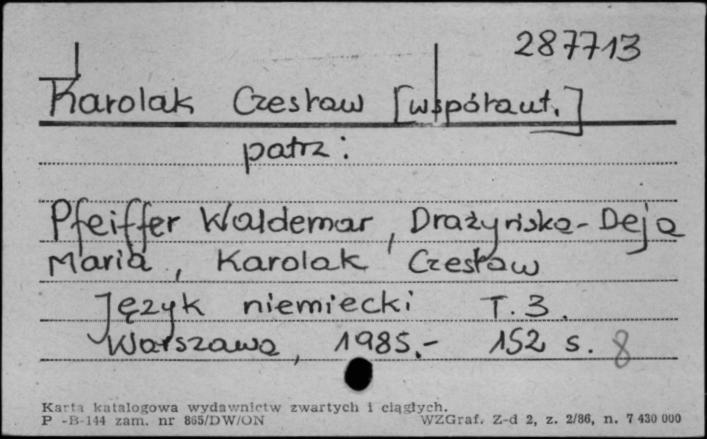 287713
Karolak Czesław [współaut.]
patrz:
Pfeiffer Waldemar, Drażyńska-Deja
Maria, Karolak Czesław
Język niemiecki T. 3.
Warszawa, 1985.- 152 s. 8
Karta katalogowa wydawnictw zwartych i ciągłych.
P -B-144 zam. nr 865/DW/ON WZGraf. Z-d 2, z. 2/86, n. 7 430 000